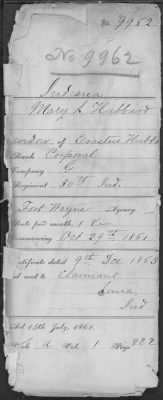 No. 9952
No 9962
Indiana
Mary A Hubbard
widow of Erastus Hubb
Rank Corporal
Company G
Regiment 30th Ind.
Fort Wayne Agency
Rate per month 8
commencing Oct 29th 186
Certificate dated 9th Dec 1863
and sent to Claimant
Ind
Act 14th July, 1862.
Book A Vol. 1 Page 922